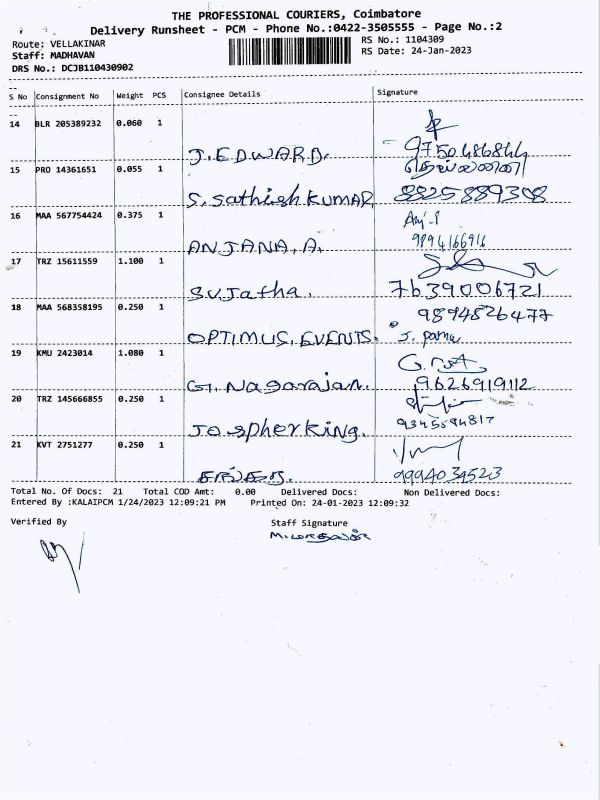 THE PROFESSIONAL COURIERS, Coimbatore
Delivery Runsheet - PCM - Phone No.:0422-3505555 - Page No.:2
Route: VELLAKINAR
RS No.: 1104309
Staff: MADHAVAN
RS Date: 24-Jan-2023
DRS No.: DCJB110430902
S No Consignment No Weight PCS Consignee Details Signature
14 BLR 205389232 0.060 1
J. EDWARD. 9750486844
15 PRO 14361651 0.055 1
S. Sathish KUMAR 8825889308
16 MAA 567754424 0.375 1
ANJANA. A. 9894166916
17 TRZ 15611559 1.100 1
SUJatha. 7639006721
18 MAA 568358195 0.250 1 9894826477
OPTIMUS. EVENTS.
19 KMU 2423014 1.080 1
G. Nagarajan. 9626919112
20 TRZ 145666855 0.250 1
Jospherking. 9345594817
21 KVT 2751277 0.250 1
9994039523
Total No. Of Docs: 21 Total COD Amt: 0.00 Delivered Docs: Non Delivered Docs:
Entered By :KALAIPCM 1/24/2023 12:09:21 PM Printed On: 24-01-2023 12:09:32
Verified By Staff Signature
M. மாதவன்